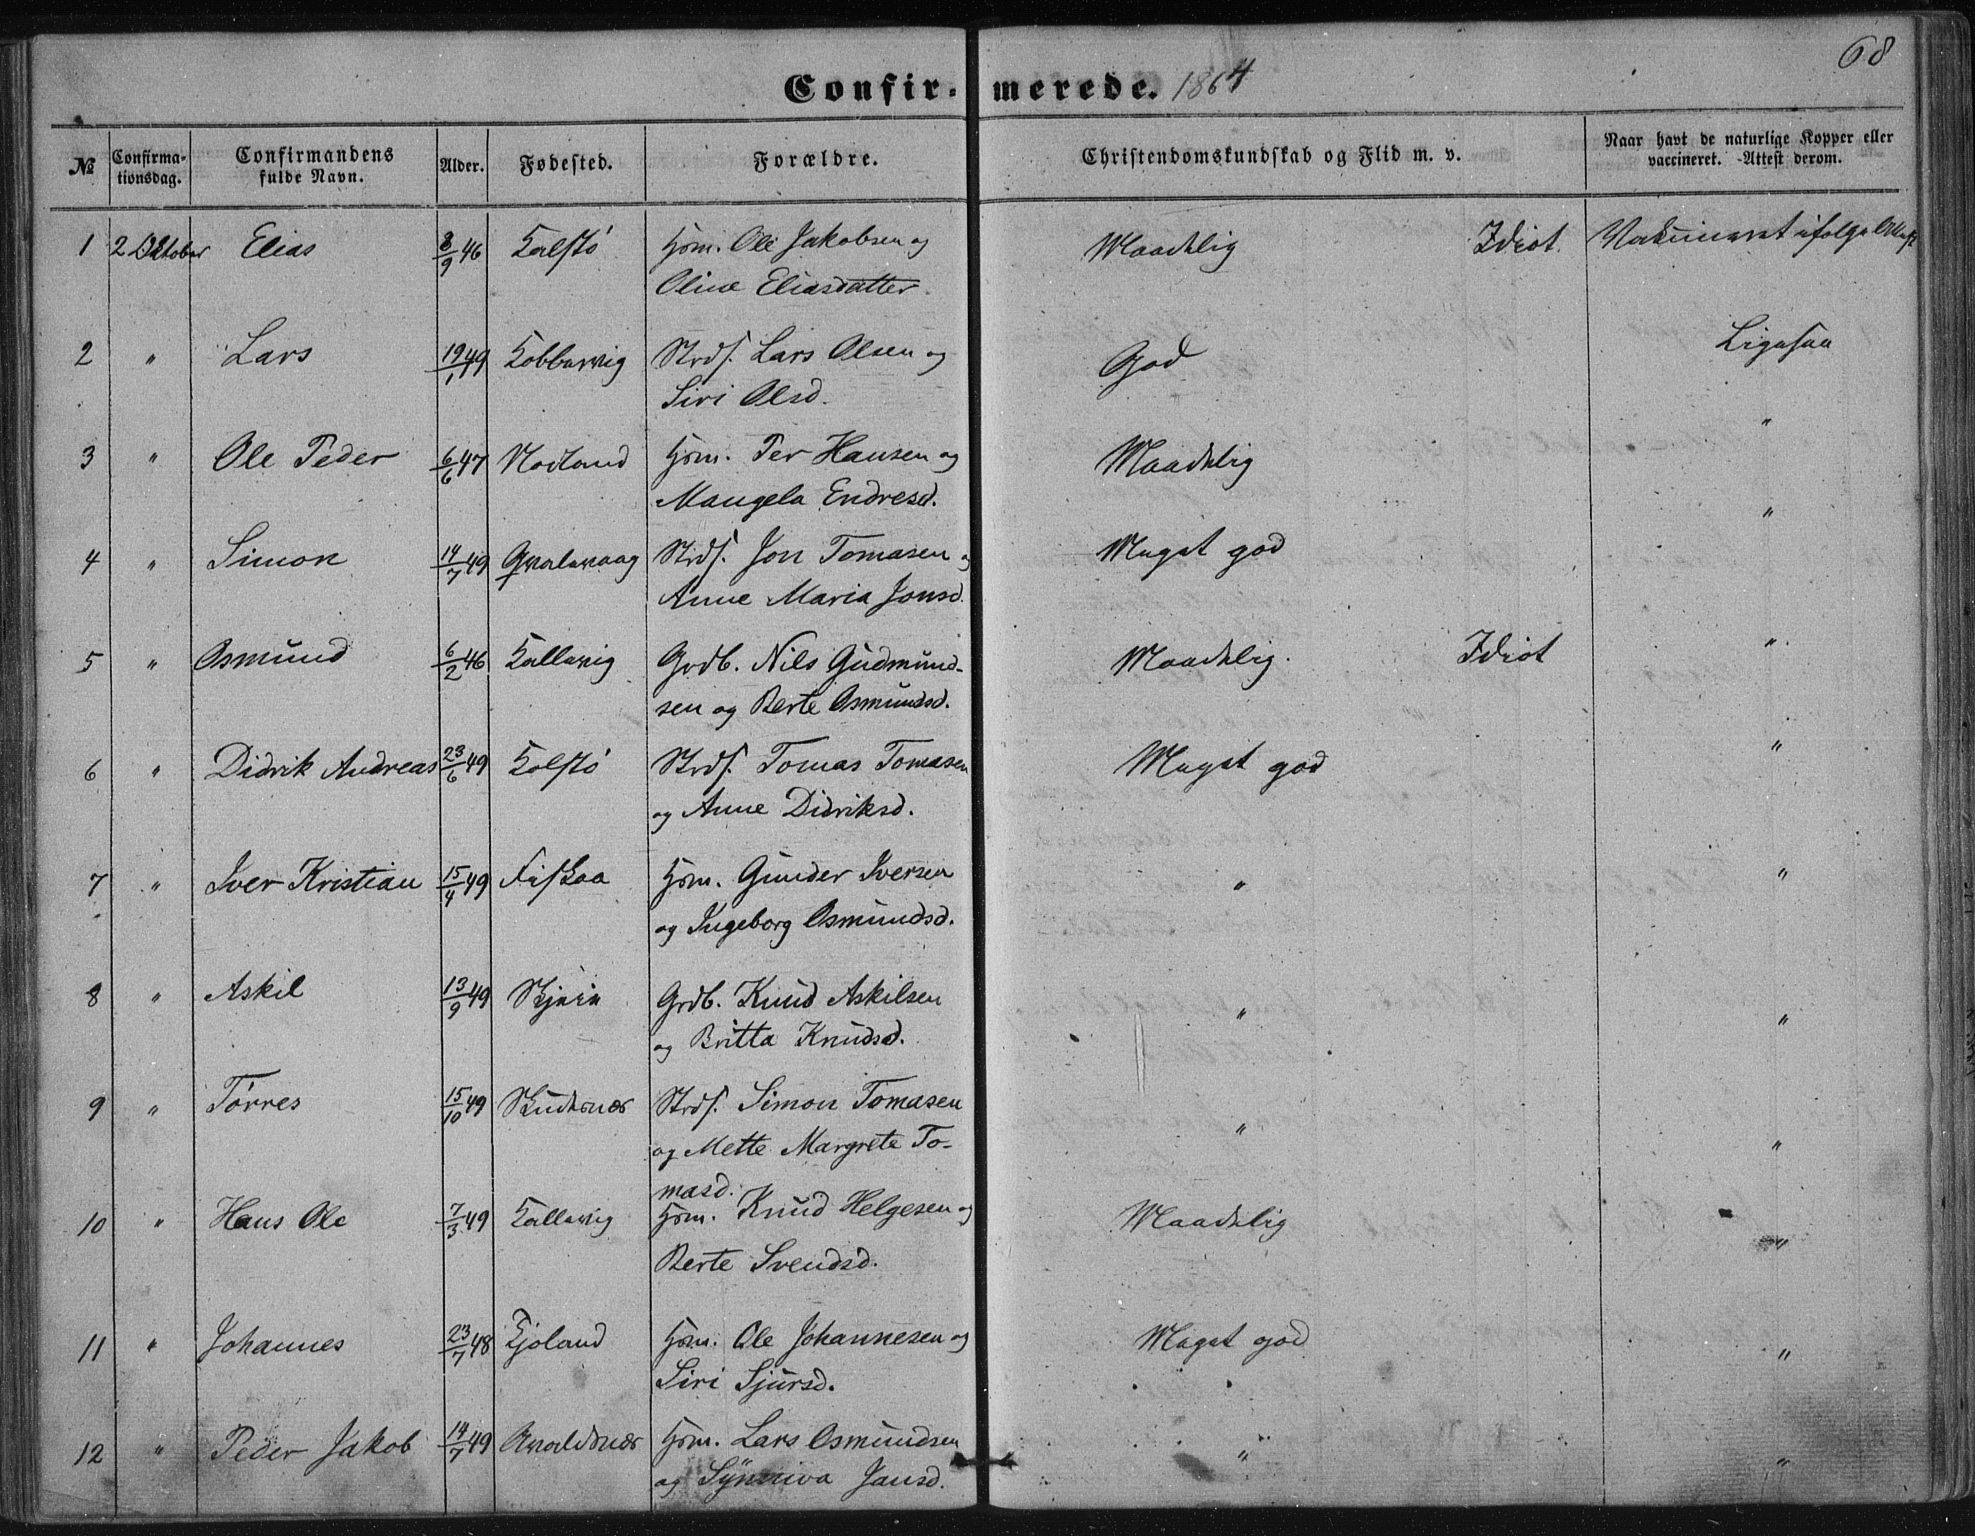 68
Confirmerede. 1864
№ Confirmationsdag. Confirmandens fulde Navn. Alder. Fødested. Forældre. Christendomskundskab og Flid m. v. Naar havt de naturlige Kopper eller vaccineret. Attest derom.
1 2 Oktober Elias 8/9 46 Kolstø Hsm. Ole Jakobsen og Maadelig Idiot. Vakcineret ifølge Attest
Oline Eliasdatter
2 " Lars 19/1 49 Kobbervig Strds. Lars Olsen og God Ligesaa
Siri Olsd.
3 " Ole Peder 6/6 47 Nodland Hsm. Per Hansen og Maadelig "
Mangela Endresd.
4 " Simon 14/7 49 Qvalevaag Strds. Jon Tomasen og Meget god "
Anne Maria Jonsd.
5 " Osmund 6/2 46 Kallevig Grdb. Nils Gudmund- Maadelig. Idiot "
sen og Berte Osmundsd.
6 " Didrik Andreas 23/6 49 Kolstø Strds. Tomas Tomasen Meget god "
og Anne Didriksd.
7 " Iver Kristian 15/4 49 Fiskaa Hsm. Gunder Iversen " "
og Ingeborg Osmundsd.
8 " Askil 13/9 49 Skjein Grdb. Knud Askilsen " "
og Britta Knudsd.
9 " Tørres 15/10 49 Skudesnæs Strds. Simon Tomasen " "
og Mette Margrete To-
masd.
10 " Hans Ole 7/3 49 Kallevig Hsm. Knud Helgesen og Maadelig "
Berte Svendsd.
11 " Johannes 23/7 48 Fjoland Hsm. Ole Johannesen og Meget god "
Siri Sjursd.
12 " Peder Jakob 14/7 49 Avaldsnæs Hsm. Lars Osmundsen " "
og Synniva Jansd.